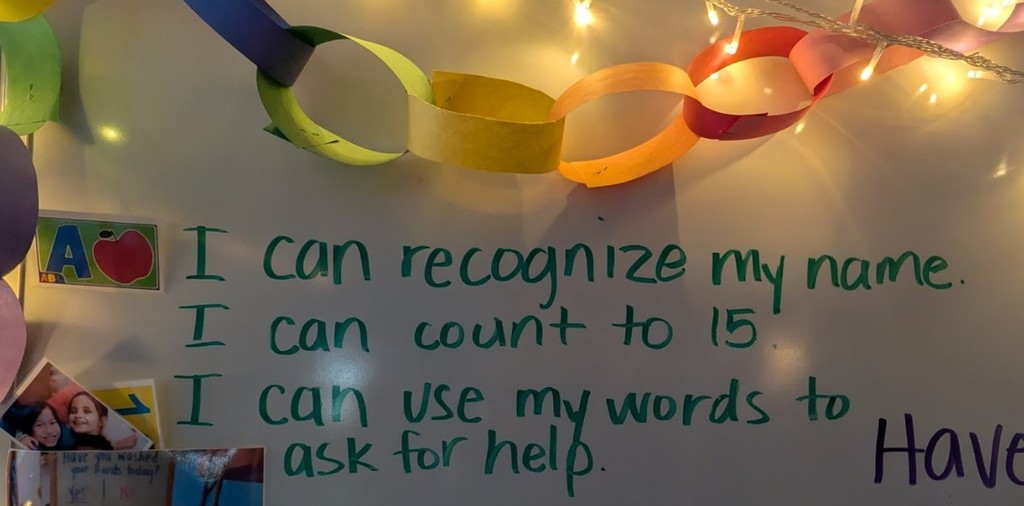 A
I can recognize my name.
I can count to 15
I can use my words to
ask for help.
Have
1
Have you washed
your hands today?
Yes No